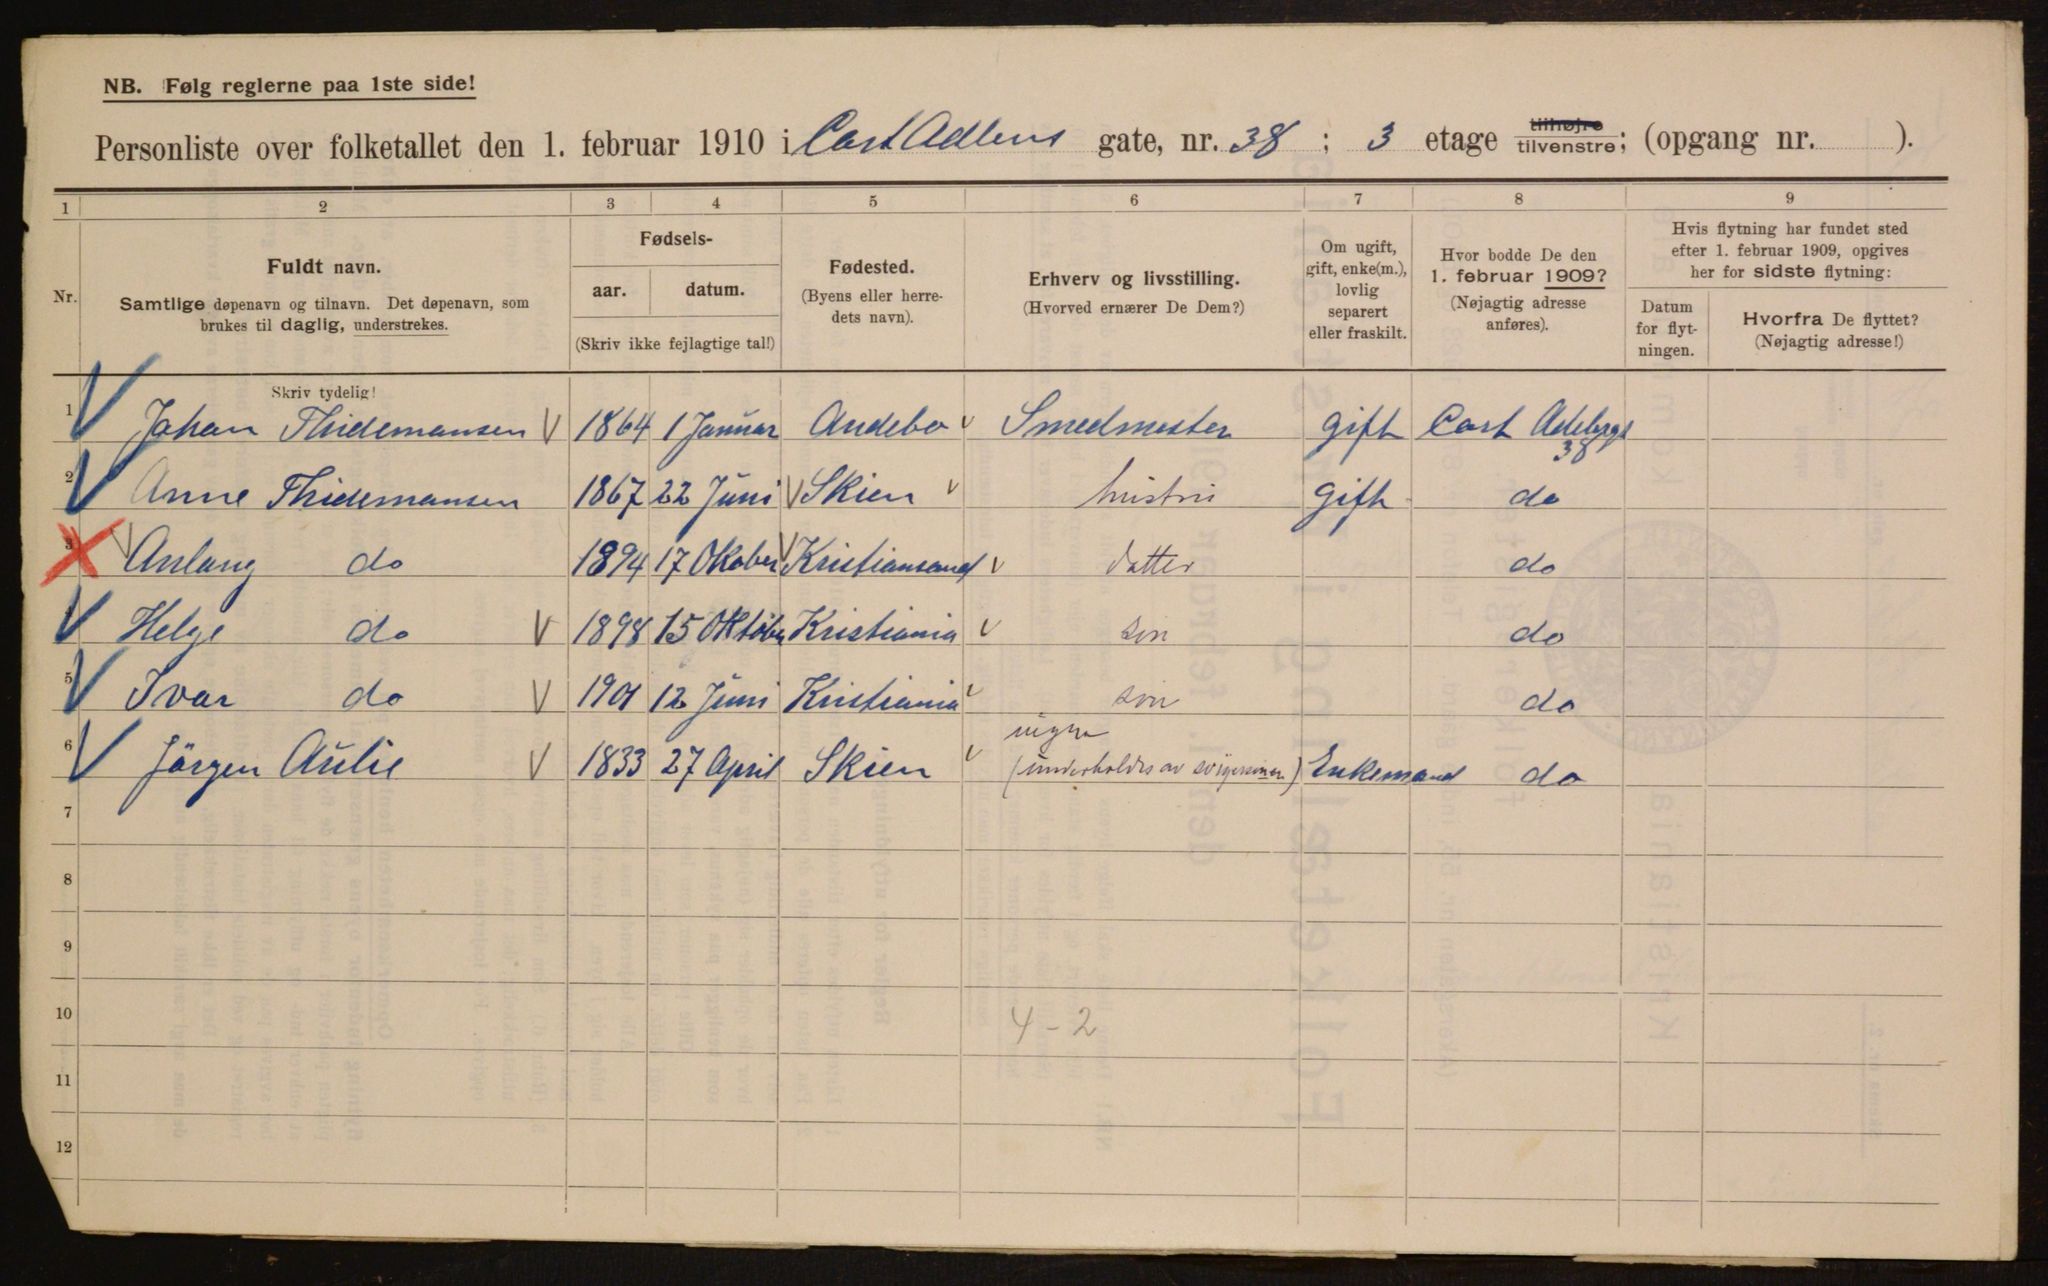 NB. Følg reglerne paa 1ste side!
Personliste over folketallet den 1. februar 1910 i Cort Adlers gate, nr. 38 ; 3 etage tilhøjre tilvenstre; (opgang nr. ).
1 2 3 4 5 6 7 8 9
Nr.
Fuldt navn.
Samtlige døpenavn og tilnavn. Det døpenavn, som
brukes til daglig, understrekes.
Skriv tydelig!
Fødsels-
aar. datum.
(Skriv ikke fejlagtige tal!)
Fødested.
(Byens eller herre-
dets navn).
Erhverv og livsstilling.
(Hvorved ernærer De Dem?)
Om ugift,
gift, enke(m.),
lovlig
separert
eller fraskilt.
Hvor bodde De den
1. februar 1909?
(Nøjagtig adresse
anføres).
Hvis flytning har fundet sted
efter 1. februar 1909, opgives
her for sidste flytning:
Datum
for flyt-
ningen.
Hvorfra De flyttet?
(Nøjagtig adresse!)
1 Johan Thidemansen 1864 1 Januar Andebo Smedmester gift Cort 38
2 Anne Thidemansen 1867 22 Juni Skien hustru Gift do
3 Aslaug do 1894 17 Okober Kristiansand datter do
4 Helge do 1898 15 Oktober Kristiania søn do
5 Ivar do 1901 12 Juni Kristiania søn do
6 Jörgen Aulie 1833 27 April Skien (underholdes av svigersønnen) Enkemand do
7
8
9
10 4-2
11
12